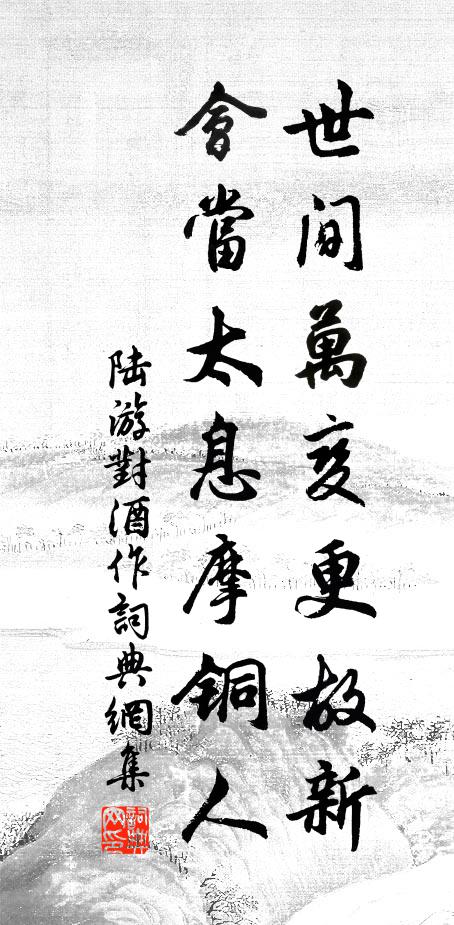 世间萬变更故新
會當太息摩铜人
陆游對酒作詞典網集